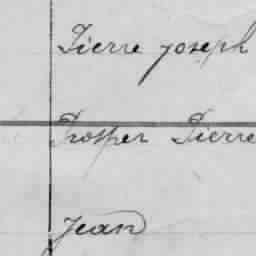 Pierre joseph
Prosper Pierre
Jean